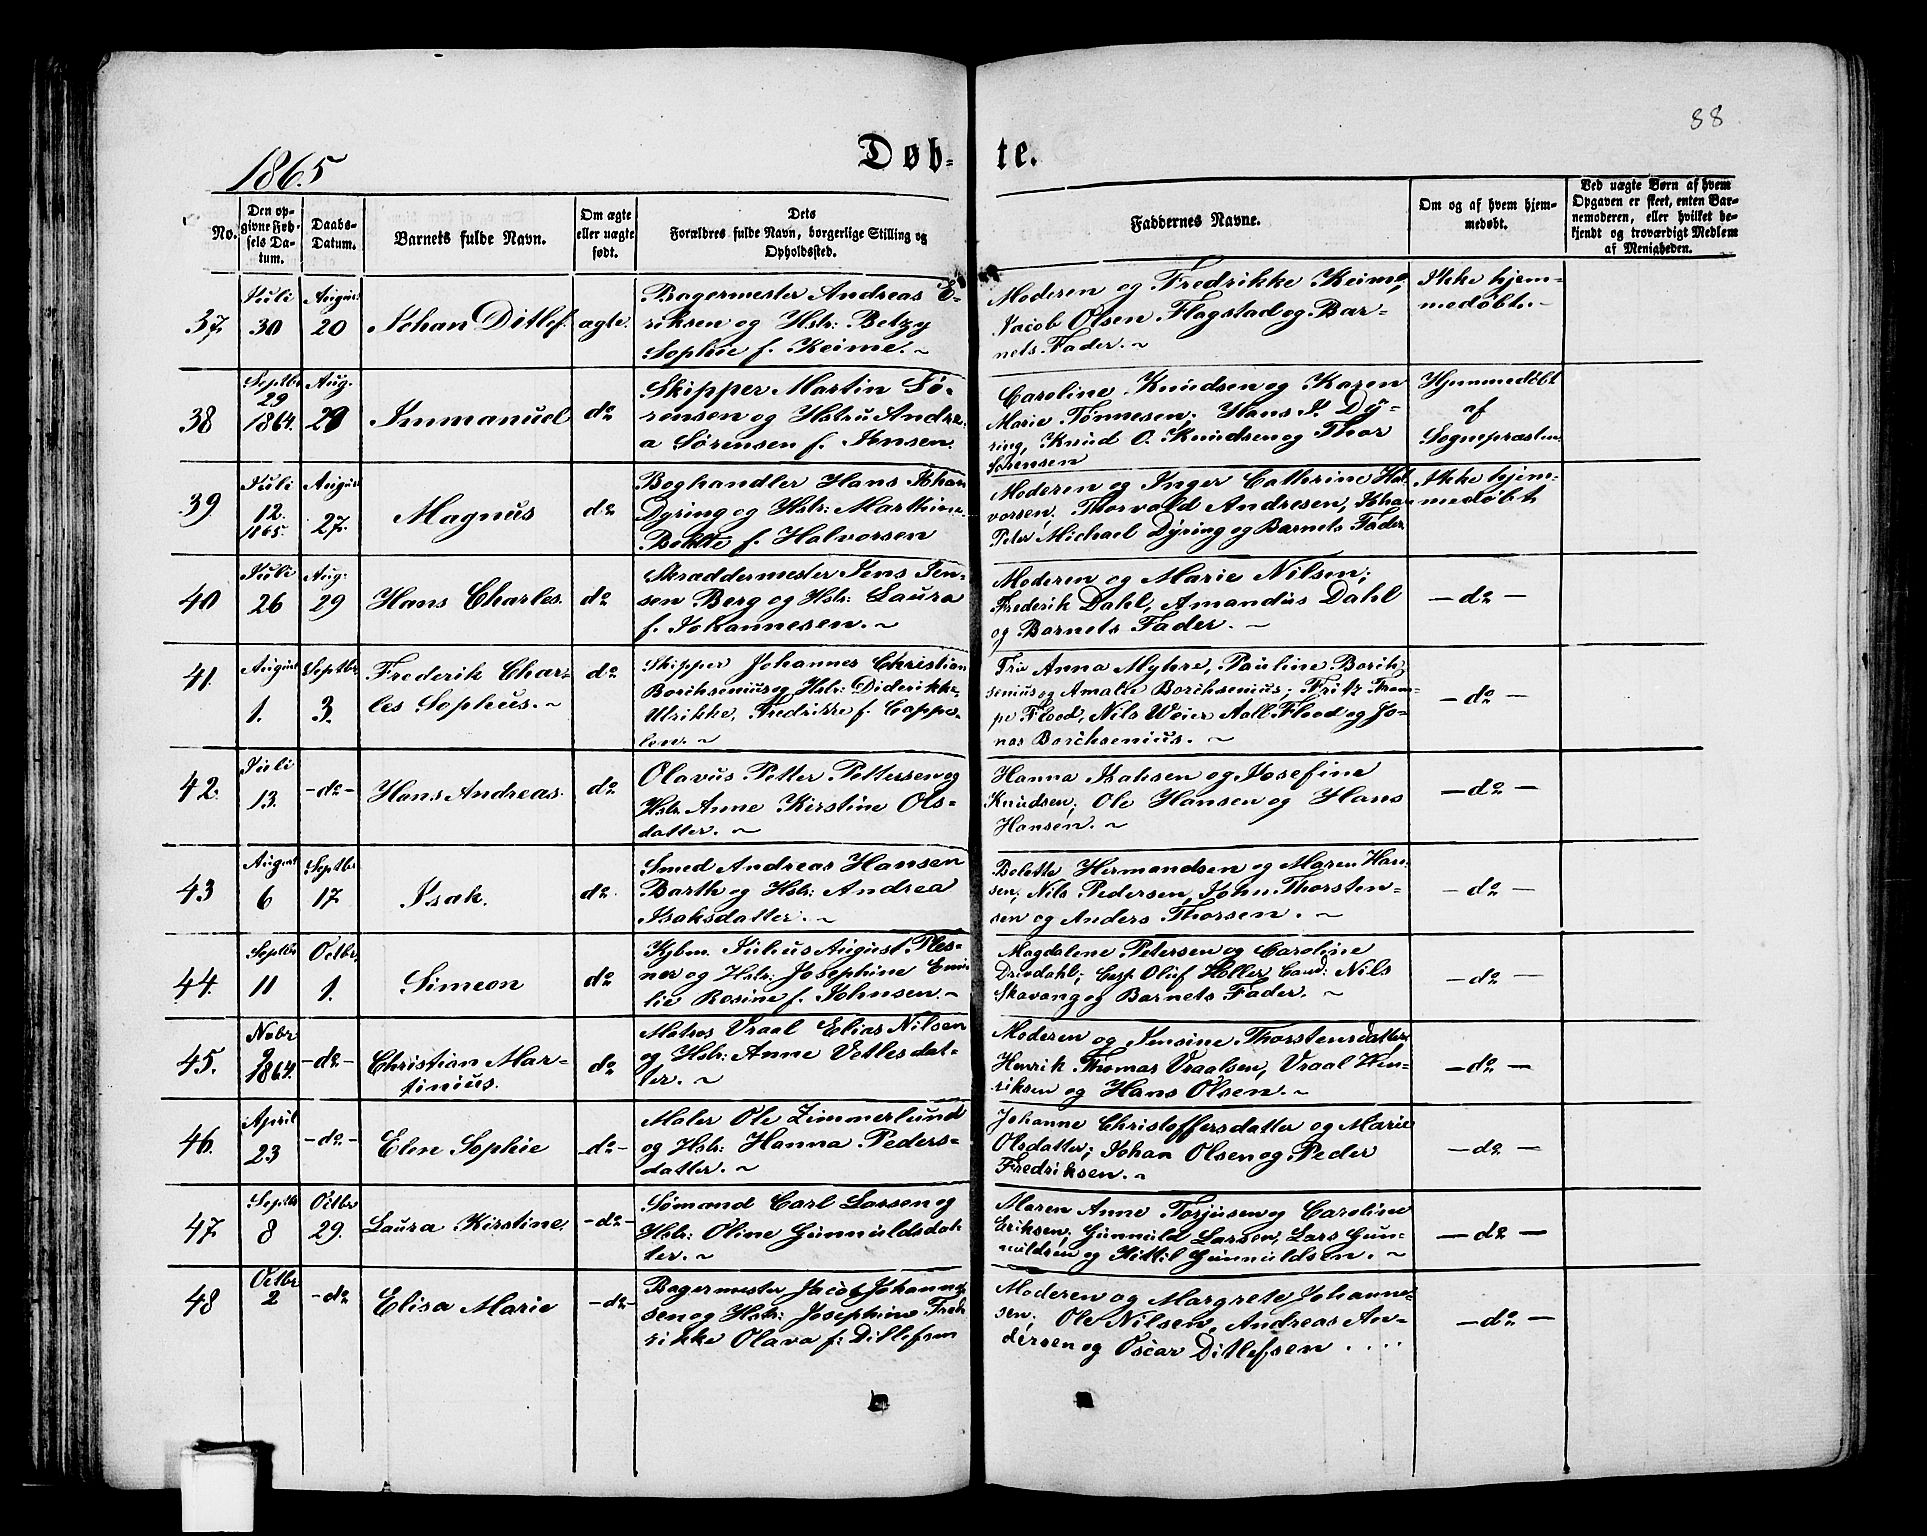 88
1865
Døb-te.
No.
Den opgivne Fødsels Datum.
Daabs-Datum.
Barnets fulde Navn.
Om ægte eller uægte født.
Dets Forældres fulde Navn, borgerlige Stilling og Opholdssted.
Faddernes Navne.
Om og af hvem hjemmedøbt.
Ved uægte Børn af hvem Opgaven er skeet, enten Barnemoderen, eller hvilket bekjendt og troværdigt Medlem af Menigheden.
37.
Juli 30
August 20
Johan Ditlef.
ægte.
Bagermester Andreas E-
riksen og Hstr: Betzy
Sophie f. Keime. ~
Moderen og Fredrikke Keime,
Jacob Olsen Flagstad og Bar-
nets Fader. ~
Ikke hjem-
medøbt. -
38
Septbr 29 1864.
Aug. 20
Immanuel
do
Skipper Martin Sø-
rensen og Hstru Andre-
a Sørensen f. Jensen.
Caroline Knudsen og Karen
Marie Tønnesen; Hans J. Dy-
ring, Knud O. Knudsen og Thor
Sørensen
Hjemmedøbt
af
Sognepræsten.
39
Juli 12. 1865.
August 27.
Magnus
do
Boghandler Hans Johan
Dyring og Hstr: Marthine
Bolette f. Halvorsen
Moderen og Inger Cathrine Hal-
vorsen. Thorvald Andresen, Johan
Peter Michael Dyring og Barnets Fader.
Ikke hjem-
medøbt
40
Juli 26
Aug. 29
Hans Charles.
do
Skræddermester Jens Jen-
sen Berg og Hstr: Laura
f. Johannesen. ~
Moderen og Marie Nilsen;
Frederik Dahl, Amandus Dahl
og Barnets Fader. ~
- do -
41.
August 1.
Septbr 3.
Frederik Char-
les Sophus. ~
do
Skipper Johannes Christian
Borchsenius og Hstr: Diderikke
Ulrikke, Fredrikke f. Coppe-
len. ~
Fru Anna Myhre, Pauline Borch-
senius og Amalie Borchsenius; Fritz From-
pe Flood, Nils Weier Aall Flood og Jo-
nas Borchsenius. ~
- do -
42.
Juli 13.
- do -
Hans Andreas.
do
Olavus Petter Pettersen og
Hstr. Anne Kirstine Ols-
datter. ~
Hanna Isaksen og Josefine
Knudsen; Ole Hansen og Hans
Hansen. ~
- do -
43
August 6
Septbr 17
Isak.
do.
Smed Andreas Hansen
Barth og Hstr: Andrea
Isaksdatter. ~
Bolette Hermandsen og Maren Han-
sen; Nils Pedersen, John Thorsten-
sen og Anders Thorsen. ~
- do -
44.
Septbr 11
Octbr. 1.
Simeon
do
Kjbm. Julius August Ples-
ner og Hstr: Josephine Emi-
lie Rosine f. Johnsen. ~
Magdalene Petersen og Caroline
Drivdahl; Cusp. Oluf Holler Cand: Nils
Skavang og Barnets Fader. ~
- do -
45.
Nobr 9 1864.
- do -
Christian Mar-
tinius.
do
Matros Vraal Elias Nilsen
og Hstr: Anne Vetlesdat-
ter. ~
Moderen og Jensine Thorstensdatter,
Henrik Thomas Vraalsen, Vraal Hen-
riksen og Hans Olsen. ~
- do -
46.
April 23
- do -
Elen Sophie
- do -
Maler Ole Zimmerlund
og Hstr: Hanna Peders-
datter. ~
Johanne Christoffersdatter og Marie
Olsdatter; Johan Olsen og Peder
Fredriksen. ~
- do -
47
Septbr 8
Octbr 29.
Laura Kirstine.
- do -
Sømand Carl Larsen og
Hstr: Oline Gunnuldsdat-
ter. ~
Maren Anne Torjusen og Caroline
Eriksen; Gunnuld Larsen, Lars Gun-
nuldsen og Kittil Gunnuldsen. ~
- do -
48
Octbr 2
- do
Elisa Marie
- do -
Bagermester Jacob Johanne-
sen og Hstr: Josephine Fred-
rikke Olava f: Ditlefsen
Moderen og Margrete Johanne-
sen; Ole Nilsen, Andreas An-
dersen og Oscar Ditlefsen . . . .
- do -